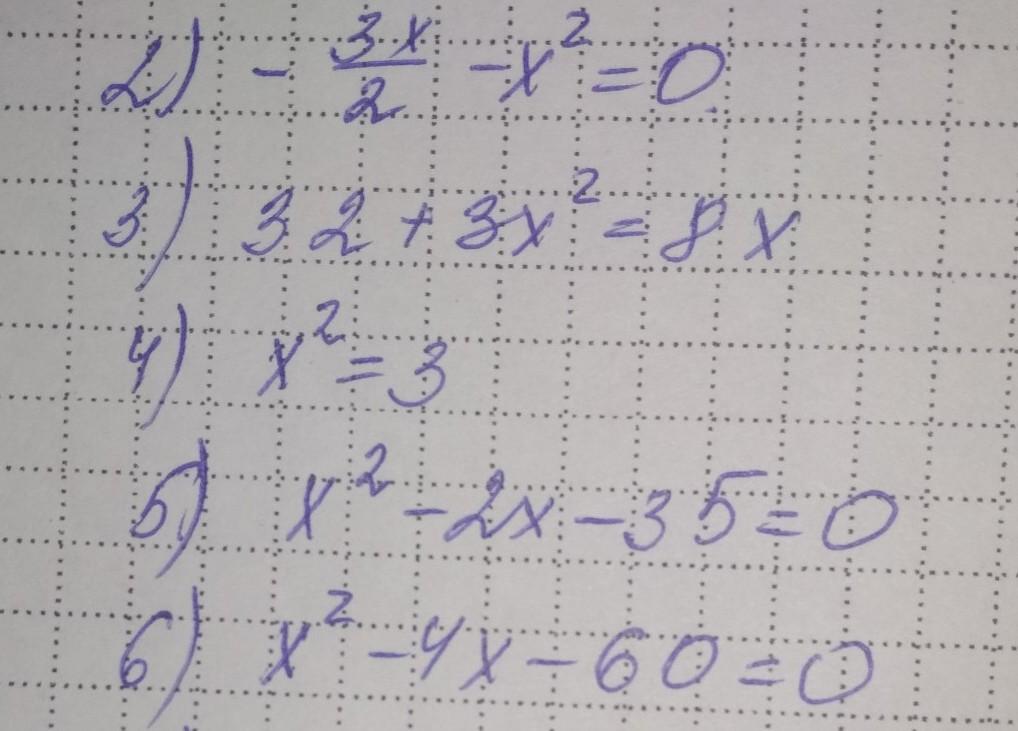 2) - 3x/2 - x² = 0
3) 32 + 3x² = 8x
4) x² = 3
5) x² - 2x - 35 = 0
6) x² - 4x - 60 = 0